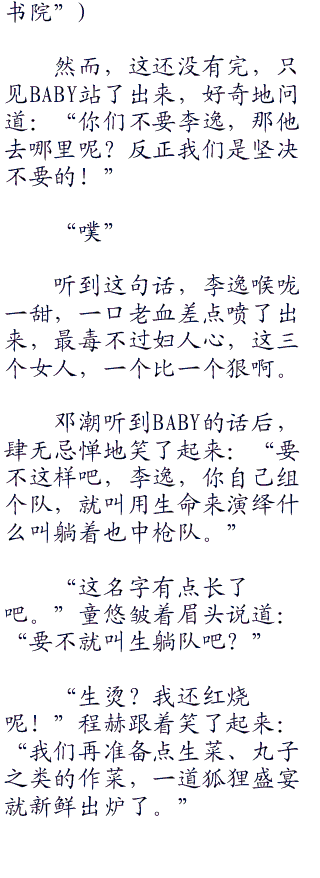 书院”）
然而，这还没有完，只
见BABY站了出来，好奇地问
道：“你们不要李逸，那他
去哪里呢？反正我们是坚决
不要的！”
“噗”
听到这句话，李逸喉咙
一甜，一口老血差点喷了出
来，最毒不过妇人心，这三
个女人，一个比一个狠啊。
邓潮听到BABY的话后，
肆无忌惮地笑了起来：“要
不这样吧，李逸，你自己组
个队，就叫用生命来演绎什
么叫躺着也中枪队。”
“这名字有点长了
吧。”童悠皱着眉头说道：
“要不就叫生躺队吧？”
“生烫？我还红烧
呢！”程赫跟着笑了起来：
“我们再准备点生菜、丸子
之类的作菜，一道狐狸盛宴
就新鲜出炉了。”